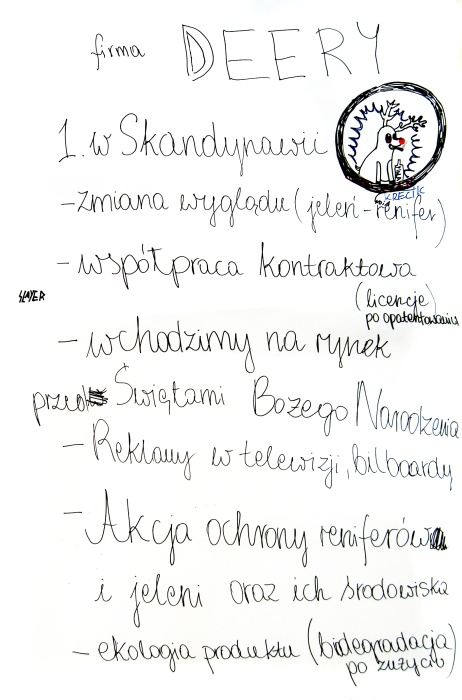 firma DEERY
1. w Skandynawii
- zmiana wyglądu (jeleń - renifer)
- współpraca kontraktowa
(licencje
po opatentowaniu
SLAYER
- wchodzimy na rynek
przed Świętami Bożego Narodzenia
- Reklamy w telewizji, bilboardy
- Akcja ochrony reniferów
i jeleni oraz ich środowiska
- ekologia produktu (biodegradacja
po zużyciu)